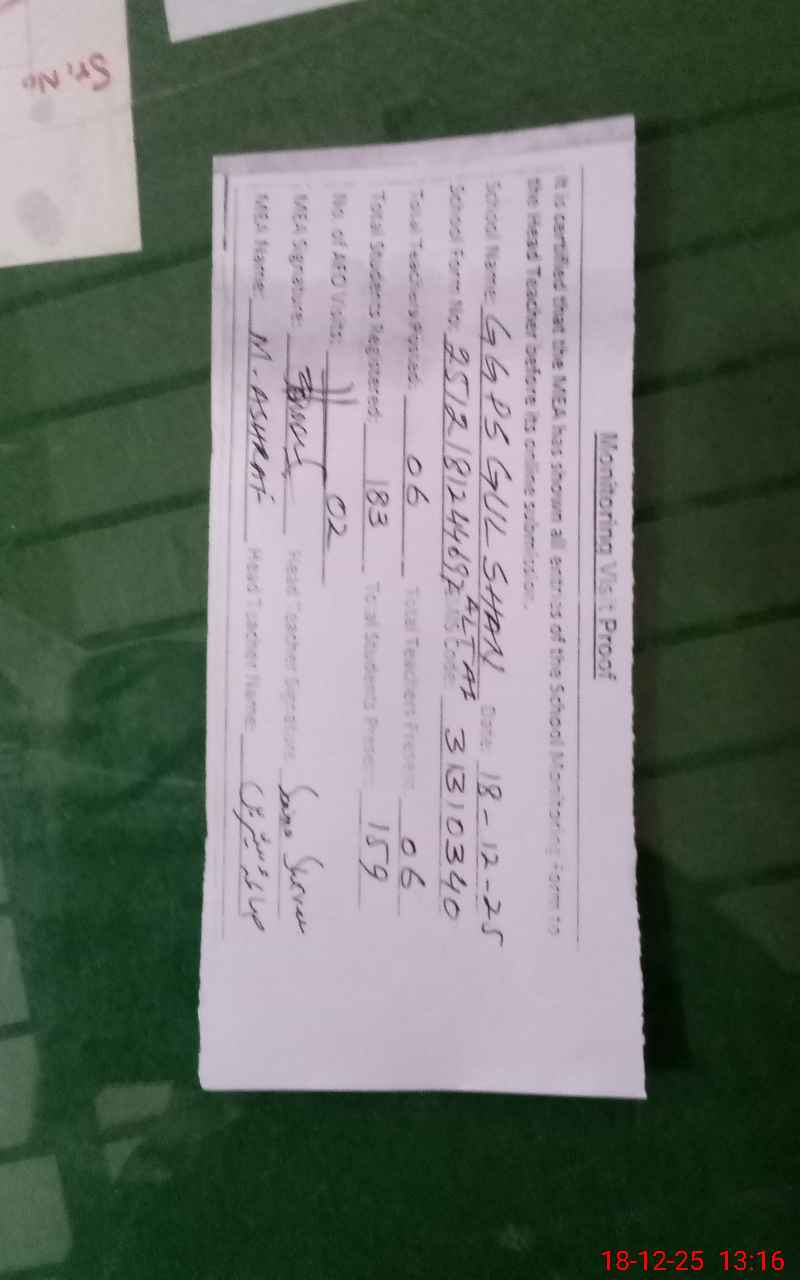 Monitoring Visit Proof
It is certified that the MEA has shown all entries of the School Monitoring Form to
the Head Teacher before its online submission.
School Name: GGPS GULSHAN ALTAF Date: 18-12-25
School Form No: EMIS Code: 31310340
Total Teachers Posted: 06 Total Teachers Present: 06
Total Students Registered: 183 Total Students Present: 159
No. of AEO Visits: 02
MEA Signature: Head Teacher Signature:
MEA Name: M. ASHRAF Head Teacher Name:
Sr. No
18-12-25 13:16